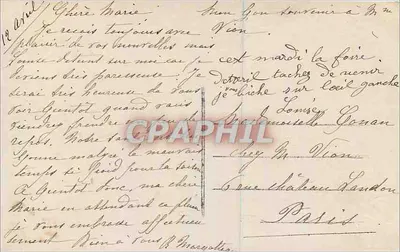 12 avril
Chère Marie
Je reçois toujours avec
plaisir de vos nouvelles mais
toute doivent sur moi car je
deviens très paresseuse. Je
serai très heureuse de vous
voir bientôt quand vous
viendrez prendre
repos. Notre
bonne malgré le mauvais
temps si froid pour la saison
A bientôt donc, ma chère
Marie en attendant ce plaisir
je vous embrasse affectueu
sement
Bien à vous R. Margotter
Mon bon souvenir à Mme
Vion
cet mardi la foire
d'avril tachez de venir
je biche sur l'œil gauche
Louise
Mademoiselle Conan
chez M. Vion
6 rue château Landon
Paris
CPAPHIL